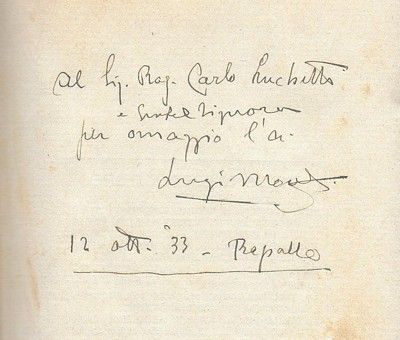 Al Sig. Rag. Carlo Luchetti
e Gentel Signora
per omaggio l'a.
Luigi
12 ott. '33 - Rapallo